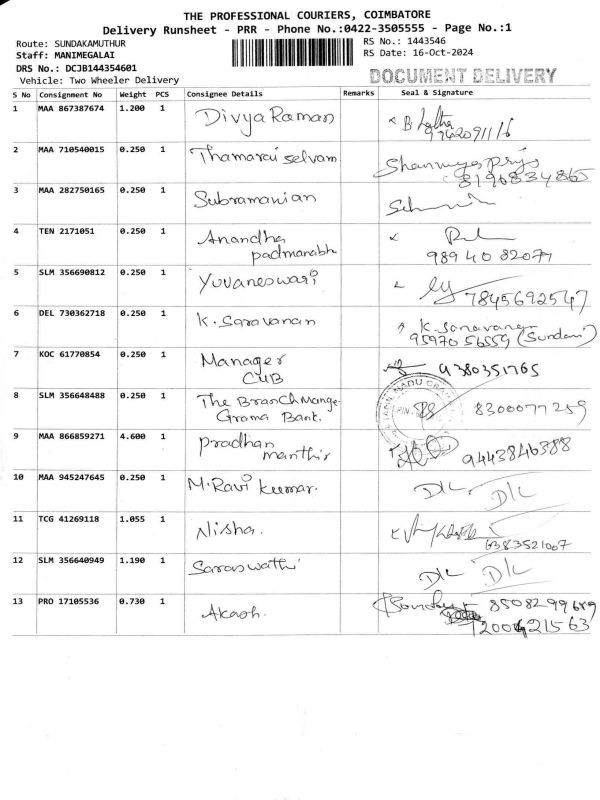 THE PROFESSIONAL COURIERS, COIMBATORE
Delivery Runsheet - PRR - Phone No.:0422-3505555 - Page No.:1
Route: SUNDAKAMUTHUR RS No.: 1443546
Staff: MANIMEGALAI RS Date: 16-Oct-2024
DRS No.: DCJB144354601
Vehicle: Two Wheeler Delivery DOCUMENT DELIVERY
S No Consignment No Weight PCS Consignee Details Remarks Seal & Signature
1 MAA 867387674 1.200 1 Divya Raman B Latha
9762091116
2 MAA 710540015 0.250 1 Thamarai selvam
8196834865
3 MAA 282750165 0.250 1 Subramanian
4 TEN 2171051 0.250 1 Anandha
padmanabh 9894082077
5 SLM 356690812 0.250 1 Yuvaneswari 7845692547
6 DEL 730362718 0.250 1 K. Saravanan K. Saravanan
9597056559 (Sundari)
7 KOC 61770854 0.250 1 Manager 9380351765
CUB
8 SLM 356648488 0.250 1 The Branch Mange
Grama Bank. 8300077259
9 MAA 866859271 4.600 1 Pradhan
manthir 9443846388
10 MAA 945247645 0.250 1 M. Ravi kumar. D/L D/L
11 TCG 41269118 1.055 1 Nisha.
6383521007
12 SLM 356640949 1.190 1 Saraswathi D/L D/L
13 PRO 17105536 0.730 1 Akash. 8508299689
7200421563